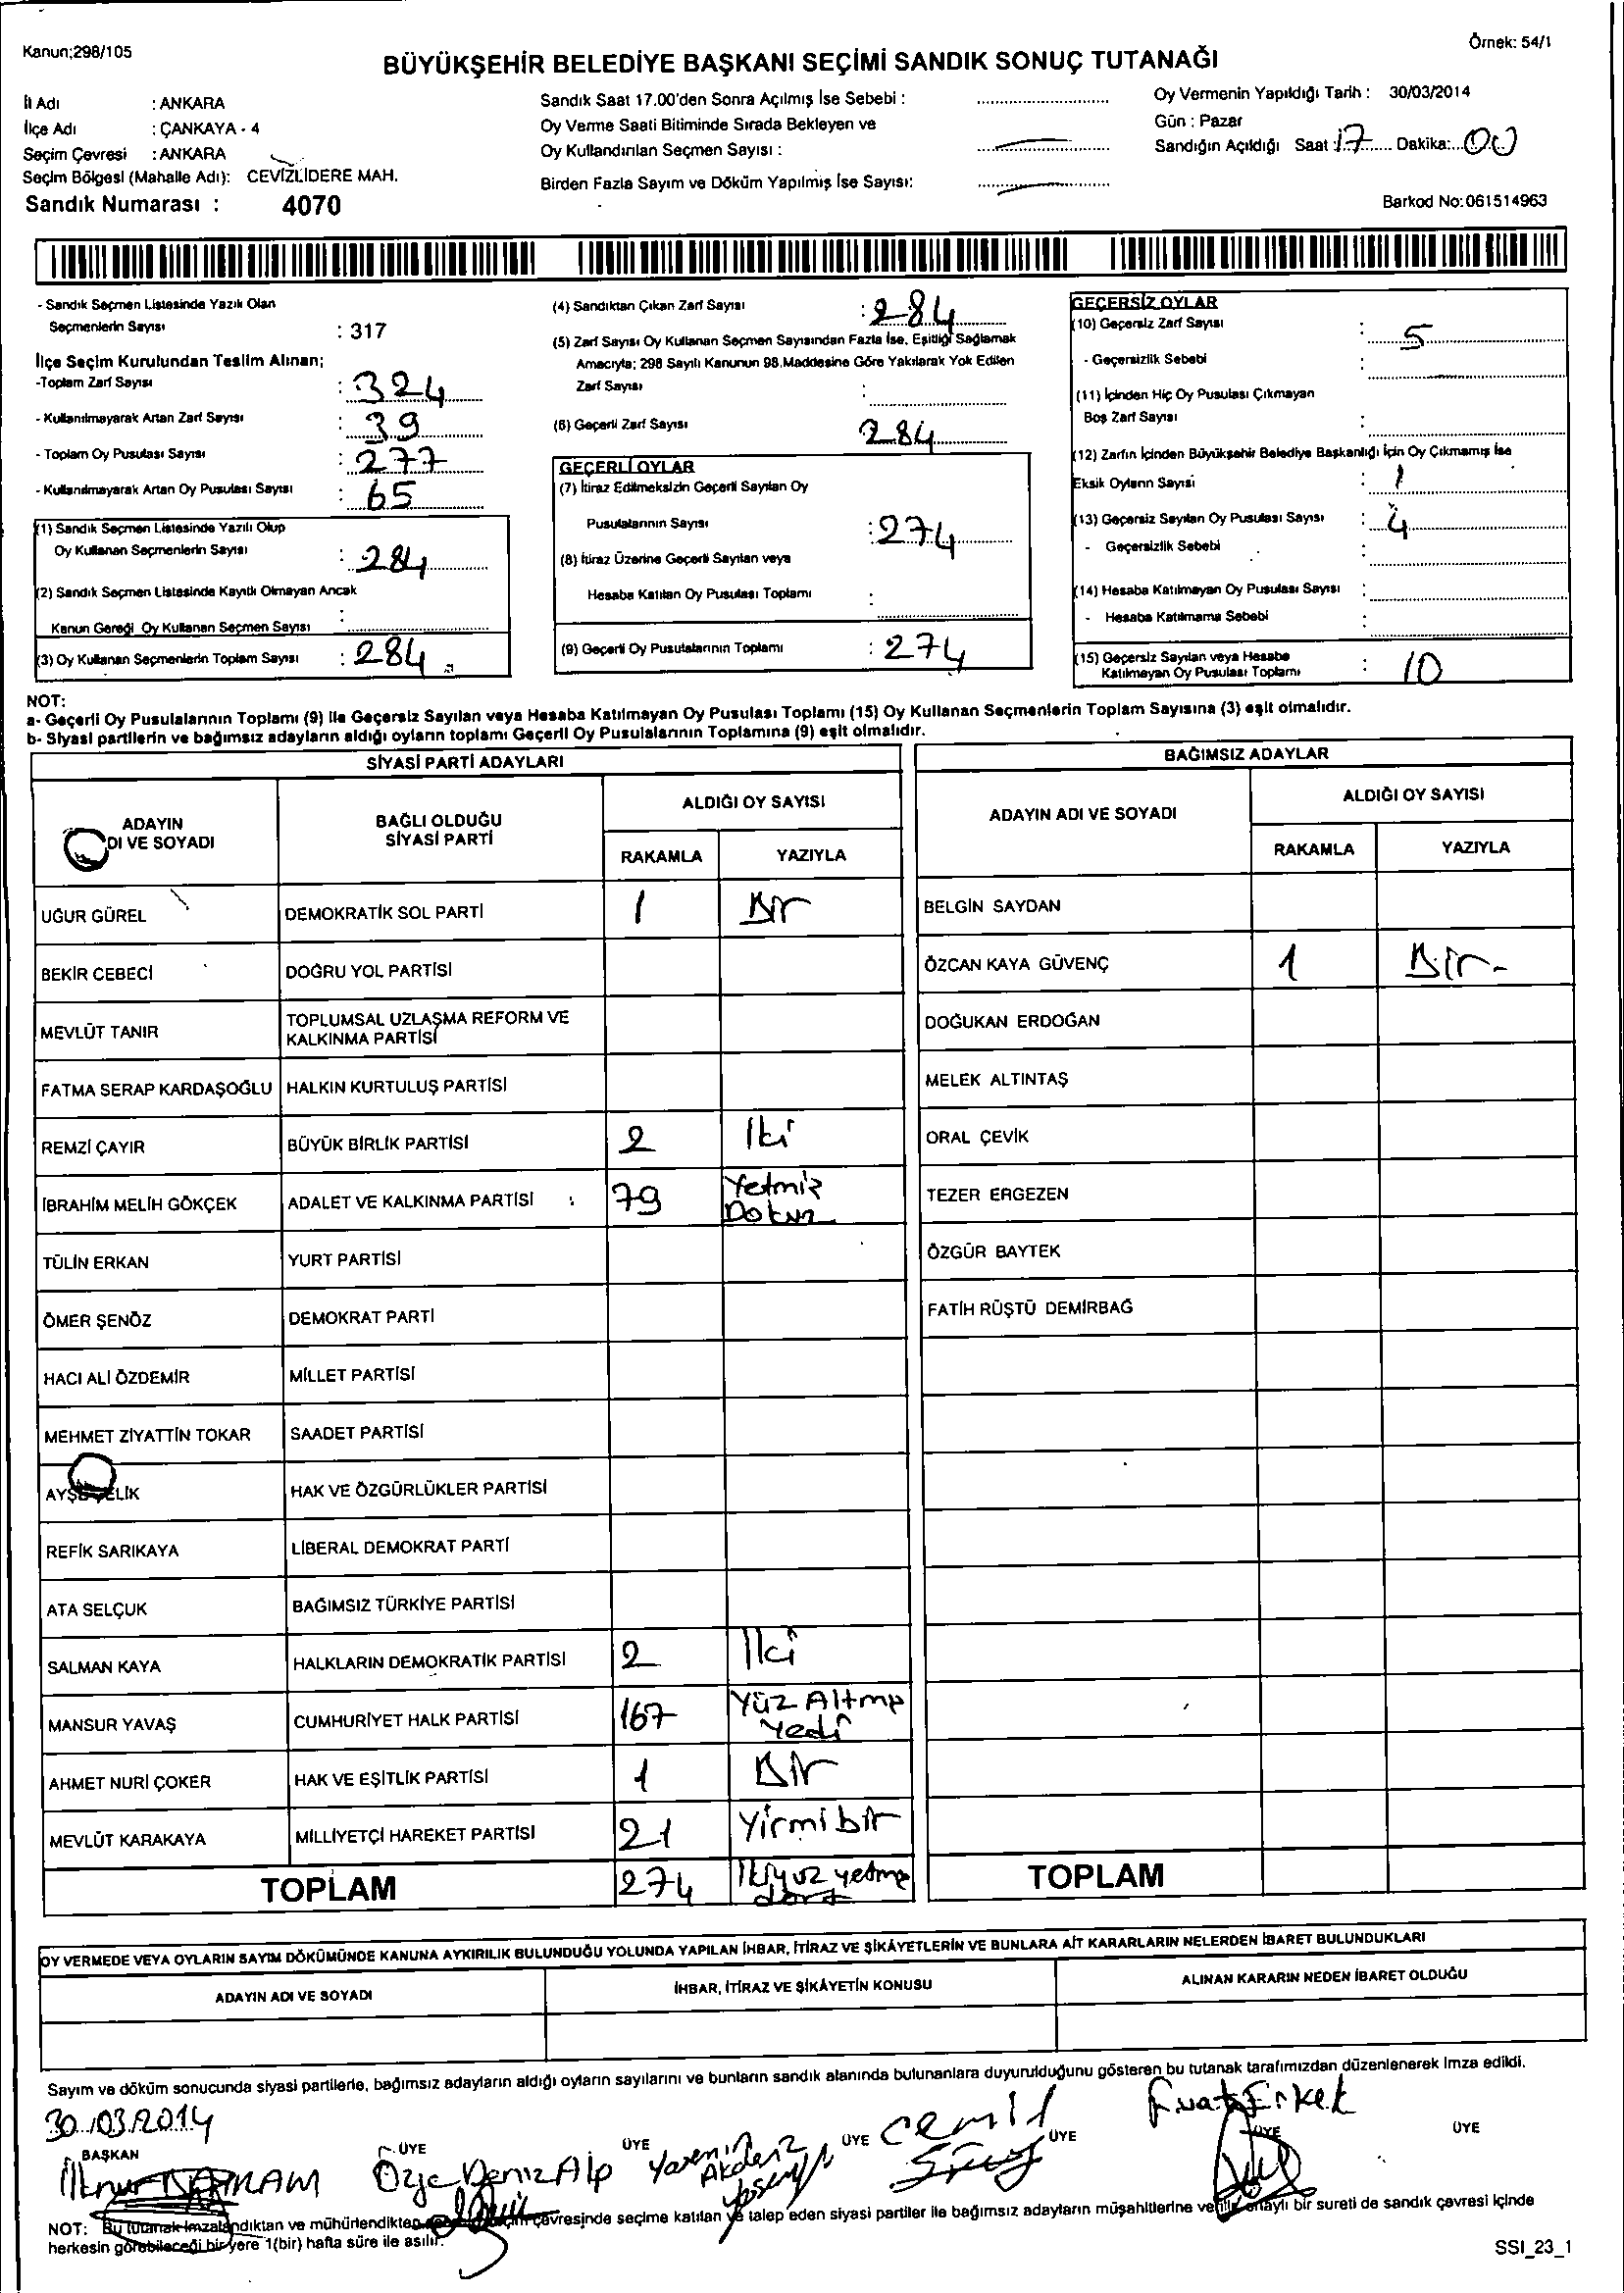 Kanun;298/105
Örnek: 54/1
BÜYÜKŞEHİR BELEDİYE BAŞKANI SEÇİMİ SANDIK SONUÇ TUTANAĞI
İl Adı : ANKARA
İlçe Adı : ÇANKAYA - 4
Seçim Çevresi : ANKARA
Seçim Bölgesi (Mahalle Adı): CEVİZLİDERE MAH.
Sandık Numarası : 4070
Sandık Saat 17.00'den Sonra Açılmış İse Sebebi :
Oy Verme Saati Bitiminde Sırada Bekleyen ve
Oy Kullandırılan Seçmen Sayısı :
Birden Fazla Sayım ve Döküm Yapılmış İse Sayısı:
Oy Vermenin Yapıldığı Tarih : 30/03/2014
Gün : Pazar
Sandığın Açıldığı Saat : 17 Dakika: 00
Barkod No:061514963
- Sandık Seçmen Listesinde Yazılı Olan
Seçmenlerin Sayısı : 317
İlçe Seçim Kurulundan Teslim Alınan;
-Toplam Zarf Sayısı : 324
- Kullanılmayarak Artan Zarf Sayısı : 39
- Toplam Oy Pusulası Sayısı : 277
- Kullanılmayarak Artan Oy Pusulası Sayısı : 65
(1) Sandık Seçmen Listesinde Yazılı Olup
Oy Kullanan Seçmenlerin Sayısı : 284
(2) Sandık Seçmen Listesinde Kayıtlı Olmayan Ancak
Kanun Gereği Oy Kullanan Seçmen Sayısı :
(3) Oy Kullanan Seçmenlerin Toplam Sayısı : 284
(4) Sandıktan Çıkan Zarf Sayısı : 284
(5) Zarf Sayısı Oy Kullanan Seçmen Sayısından Fazla İse, Eşitliği Sağlamak
Amacıyla; 298 Sayılı Kanunun 98.Maddesine Göre Yakılarak Yok Edilen
Zarf Sayısı :
(6) Geçerli Zarf Sayısı 284
GEÇERLİ OYLAR
(7) İtiraz Edilmeksizin Geçerli Sayılan Oy
Pusulalarının Sayısı : 274
(8) İtiraz Üzerine Geçerli Sayılan veya
Hesaba Katılan Oy Pusulası Toplamı :
(9) Geçerli Oy Pusulalarının Toplamı : 274
GEÇERSİZ OYLAR
(10) Geçersiz Zarf Sayısı : 5
- Geçersizlik Sebebi :
(11) İçinden Hiç Oy Pusulası Çıkmayan
Boş Zarf Sayısı :
(12) Zarfın İçinden Büyükşehir Belediye Başkanlığı İçin Oy Çıkmamış İse
Eksik Oyların Sayısı : 1
(13) Geçersiz Sayılan Oy Pusulası Sayısı : 4
- Geçersizlik Sebebi :
(14) Hesaba Katılmayan Oy Pusulası Sayısı :
- Hesaba Katılmama Sebebi :
(15) Geçersiz Sayılan veya Hesaba
Katılmayan Oy Pusulası Toplamı : 10
NOT:
a- Geçerli Oy Pusulalarının Toplamı (9) ile Geçersiz Sayılan veya Hesaba Katılmayan Oy Pusulası Toplamı (15) Oy Kullanan Seçmenlerin Toplam Sayısına (3) eşit olmalıdır.
b- Siyasi partilerin ve bağımsız adayların aldığı oyların toplamı Geçerli Oy Pusulalarının Toplamına (9) eşit olmalıdır.
SİYASİ PARTİ ADAYLARI
ADAYIN
DI VE SOYADI
BAĞLI OLDUĞU
SİYASİ PARTİ
ALDIĞI OY SAYISI
RAKAMLA YAZIYLA
UĞUR GÜREL DEMOKRATİK SOL PARTİ 1 Bir
BEKİR CEBECİ DOĞRU YOL PARTİSİ
MEVLÜT TANIR TOPLUMSAL UZLAŞMA REFORM VE
KALKINMA PARTİSİ
FATMA SERAP KARDAŞOĞLU HALKIN KURTULUŞ PARTİSİ
REMZİ ÇAYIR BÜYÜK BİRLİK PARTİSİ 2 İki
İBRAHİM MELİH GÖKÇEK ADALET VE KALKINMA PARTİSİ 79 Yetmiş
Dokuz
TÜLİN ERKAN YURT PARTİSİ
ÖMER ŞENÖZ DEMOKRAT PARTİ
HACI ALİ ÖZDEMİR MİLLET PARTİSİ
MEHMET ZİYATTİN TOKAR SAADET PARTİSİ
AYŞE ÇELİK HAK VE ÖZGÜRLÜKLER PARTİSİ
REFİK SARIKAYA LİBERAL DEMOKRAT PARTİ
ATA SELÇUK BAĞIMSIZ TÜRKİYE PARTİSİ
SALMAN KAYA HALKLARIN DEMOKRATİK PARTİSİ 2 İki
MANSUR YAVAŞ CUMHURİYET HALK PARTİSİ 167 Yüz Altmış
Yedi
AHMET NURİ ÇOKER HAK VE EŞİTLİK PARTİSİ 1 Bir
MEVLÜT KARAKAYA MİLLİYETÇİ HAREKET PARTİSİ 21 Yirmi bir
TOPLAM 274 İkiyüz yetmiş
dört
BAĞIMSIZ ADAYLAR
ADAYIN ADI VE SOYADI
ALDIĞI OY SAYISI
RAKAMLA YAZIYLA
BELGİN SAYDAN
ÖZCAN KAYA GÜVENÇ 1 Bir-
DOĞUKAN ERDOĞAN
MELEK ALTINTAŞ
ORAL ÇEVİK
TEZER ERGEZEN
ÖZGÜR BAYTEK
FATİH RÜŞTÜ DEMİRBAĞ
TOPLAM
OY VERMEDE VEYA OYLARIN SAYIM DÖKÜMÜNDE KANUNA AYKIRILIK BULUNDUĞU YOLUNDA YAPILAN İHBAR, İTİRAZ VE ŞİKÂYETLERİN VE BUNLARA AİT KARARLARIN NELERDEN İBARET BULUNDUKLARI
ADAYIN ADI VE SOYADI İHBAR, İTİRAZ VE ŞİKÂYETİN KONUSU ALINAN KARARIN NEDEN İBARET OLDUĞU
Sayım ve döküm sonucunda siyasi partilerle, bağımsız adayların aldığı oyların sayılarını ve bunların sandık alanında bulunanlara duyurulduğunu gösteren bu tutanak tarafımızdan düzenlenerek imza edildi.
30/03/2014
BAŞKAN ÜYE ÜYE ÜYE ÜYE ÜYE ÜYE
İlknur BAYRAM
Özge Deniz Alp
Akdeniz
Cemil
Fuat Erkek
NOT: Bu tutanak imzalandıktan ve mühürlendikten çevresinde seçime katılan ve talep eden siyasi partiler ile bağımsız adayların müşahitlerine verilir onaylı bir sureti de sandık çevresi içinde
herkesin görebileceği bir yere 1(bir) hafta süre ile asılır.
SSI_23_1